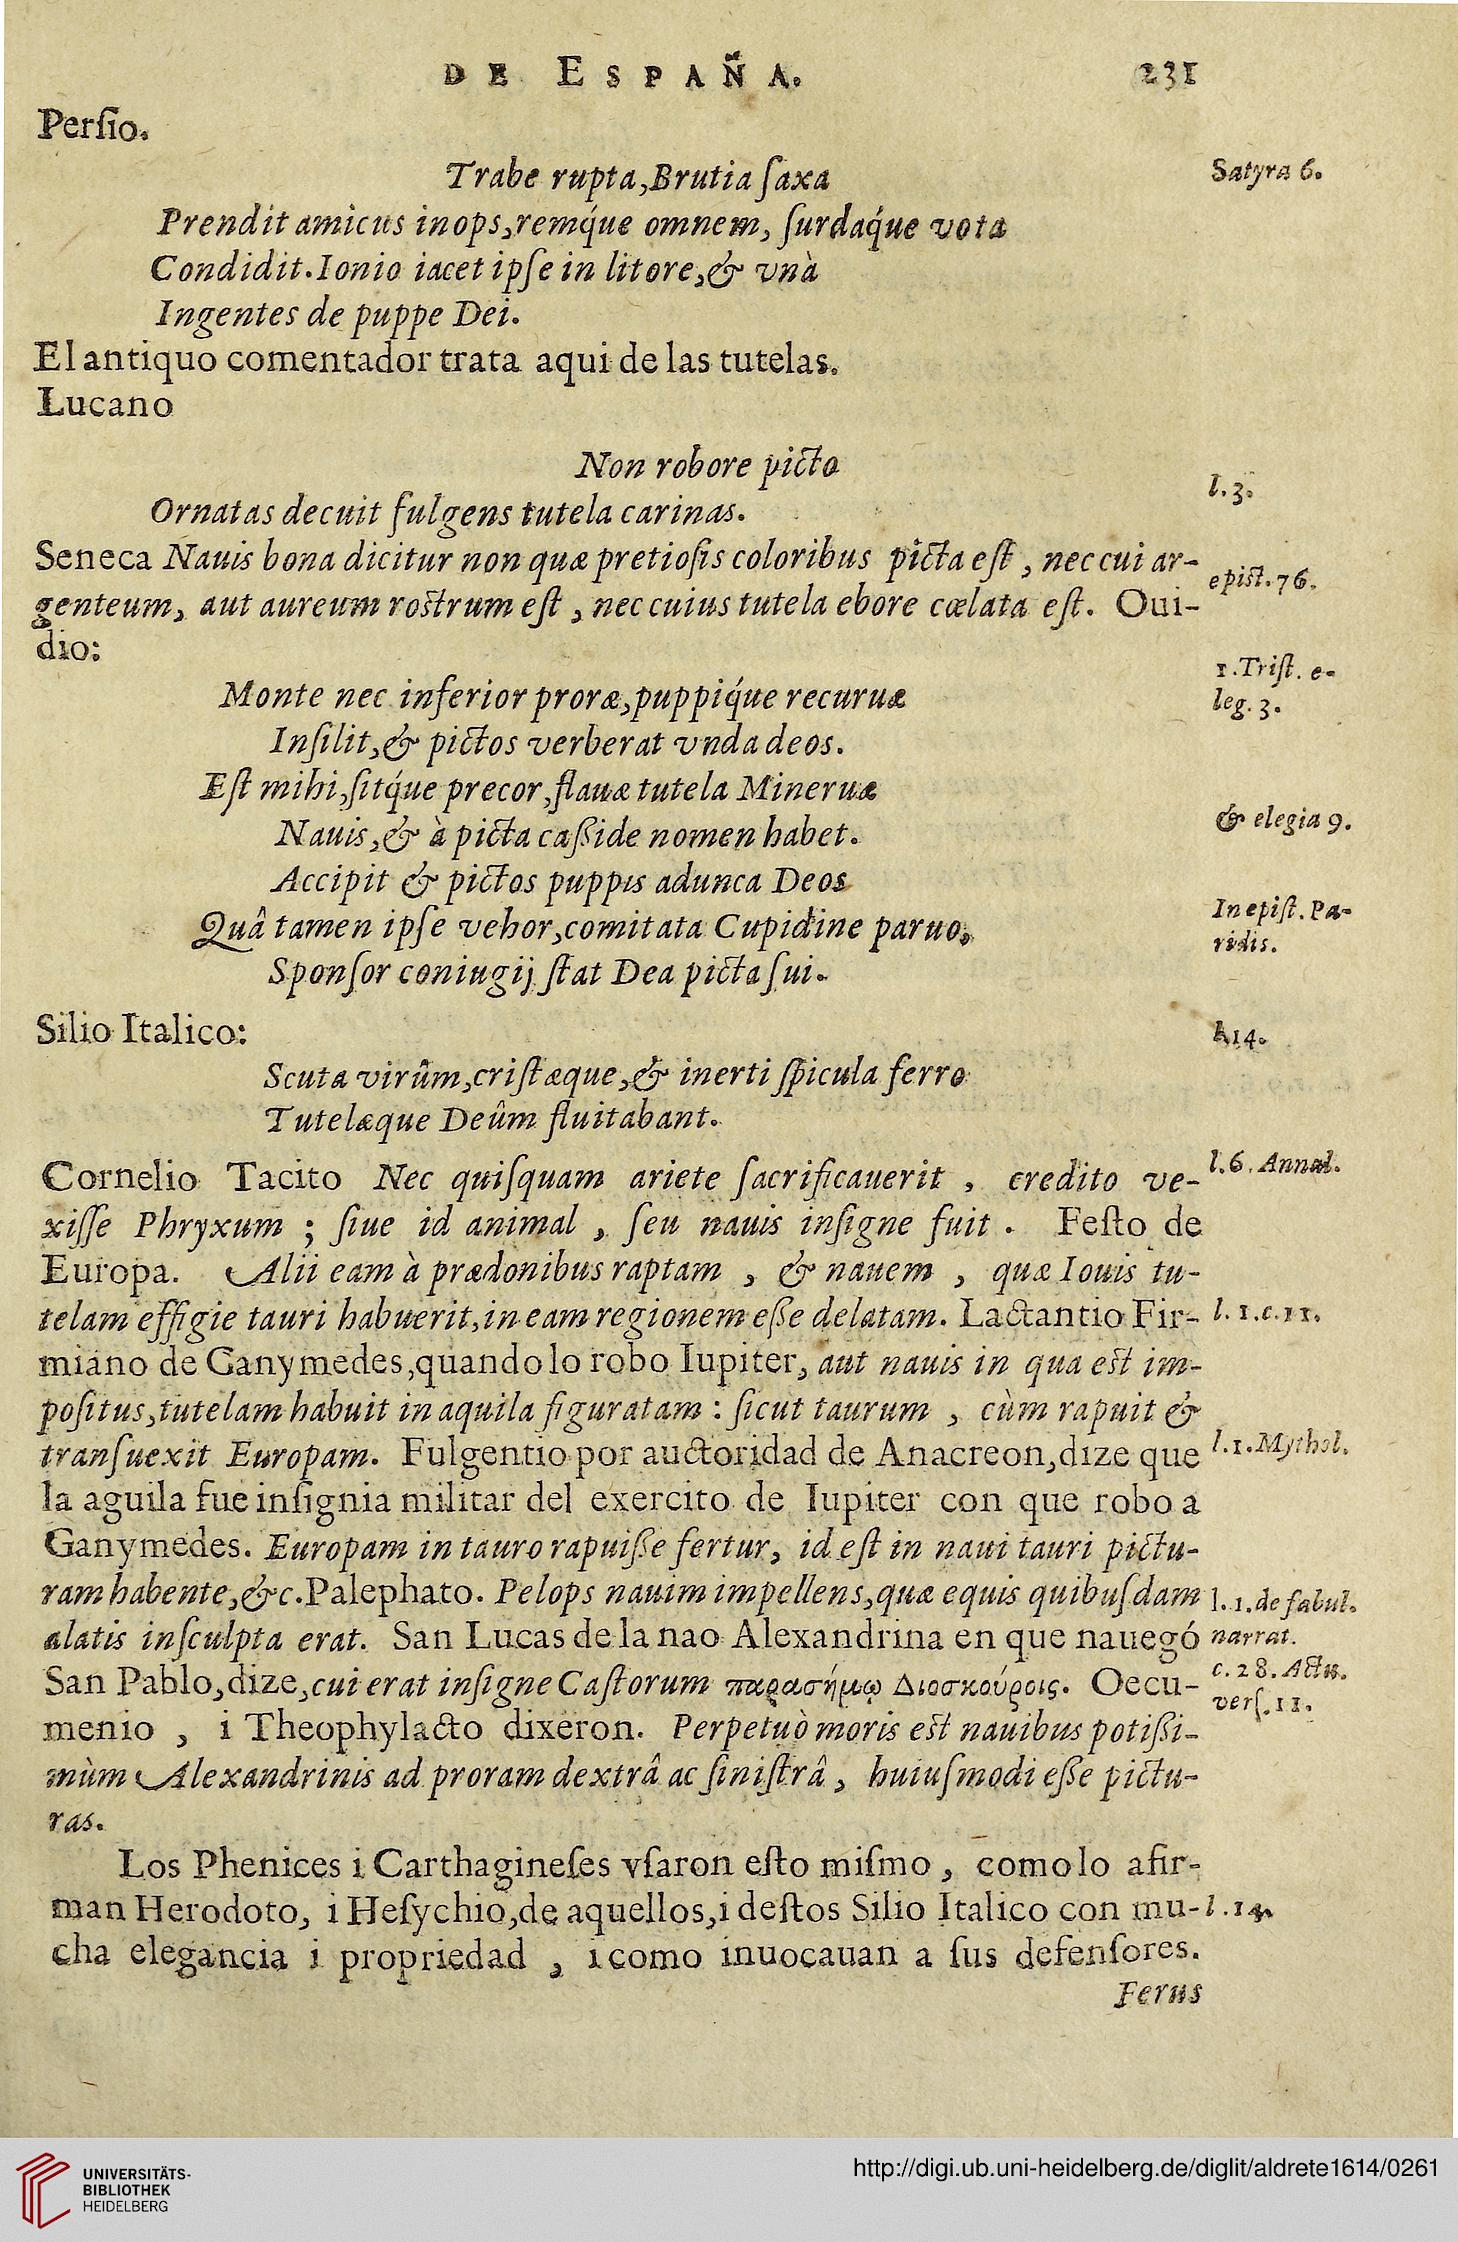 DE ESPAÑA. 231
Perſio.
Trabe rupta, Brutia ſaxa
Satyra 6.
Prendit amicus inops, remq́ue omnem, ſurdaq́ue vota
Condidit. Ionio iacet ipſe in litore, & vnà
Ingentes de puppe Dei.
El antiquo comentador trata aqui de las tutelas.
Lucano
Non robore picto
l. 3.
Ornatas decuit fulgens tutela carinas.
Seneca Nauis bona dicitur non quæ pretioſis coloribus picta eſt, nec cui ar-
epist. 76.
genteum, aut aureum rostrum eſt, nec cuius tutela ebore cœlata eſt. Oui-
dio:
1. Triſt. e-
leg. 3.
Monte nec inferior proræ, puppiq́ue recuruæ
Inſilit, & pictos verberat vnda deos.
Eſt mihi, ſitq́ue precor, flauæ tutela Mineruæ
& elegia 9.
Nauis, & à picta caßide nomen habet.
Accipit & pictos puppis adunca Deos
In epiſt. Pa-
ridis.
Quâ tamen ipſe vehor, comitata Cupidine paruo,
Sponſor coniugij ſtat Dea picta ſui.
Silio Italico:
l. 14.
Scuta virûm, criſtæque, & inerti ſpicula ferro
Tutelæque Deûm fluitabant.
Cornelio Tacito Nec quiſquam ariete ſacrificauerit, credito ve-
l. 6. Annal.
xiſſe Phryxum; ſiue id animal, ſeu nauis inſigne fuit. Feſto de
Europa. Alii eam à prædonibus raptam, & nauem, quæ Iouis tu-
telam effigie tauri habuerit, in eam regionem eße delatam. Lactantio Fir-
l. 1. c. 11.
miano de Ganymedes, quando lo robo Iupiter, aut nauis in qua est im-
poſitus, tutelam habuit in aquila figuratam: ſicut taurum, cùm rapuit &
tranſuexit Europam. Fulgentio por auctoridad de Anacreon, dize que
l. 1. Mythol.
la aguila fue inſignia militar del exercito de Iupiter con que robo a
Ganymedes. Europam in tauro rapuiße fertur, id eſt in naui tauri pictu-
ram habente, &c. Palephato. Pelops nauim impellens, quæ equis quibuſdam
l. 1. de fabul.
alatis inſculpta erat. San Lucas de la nao Alexandrina en que nauegó
narrat.
San Pablo, dize, cui erat inſigne Caſtorum παρασήμῳ Διοσκούροις. Oecu-
c. 28. Actu.
verſ. 11.
menio, i Theophylacto dixeron. Perpetuò moris est nauibus potißi-
mùm Alexandrinis ad proram dextrâ ac ſiniſtrâ, huiuſmodi eße pictu-
ras.
Los Phenices i Carthagineſes vſaron eſto miſmo, como lo afir-
man Herodoto, i Heſychio, de aquellos, i deſtos Silio Italico con mu-
l. 14.
cha elegancia i propriedad, i como inuocauan a ſus defenſores.
Ferus
UNIVERSITÄTS-
BIBLIOTHEK
HEIDELBERG
http://digi.ub.uni-heidelberg.de/diglit/aldrete1614/0261